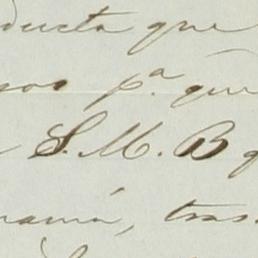 ducta que
sos p.ª que
S. M. B q
namá, tras